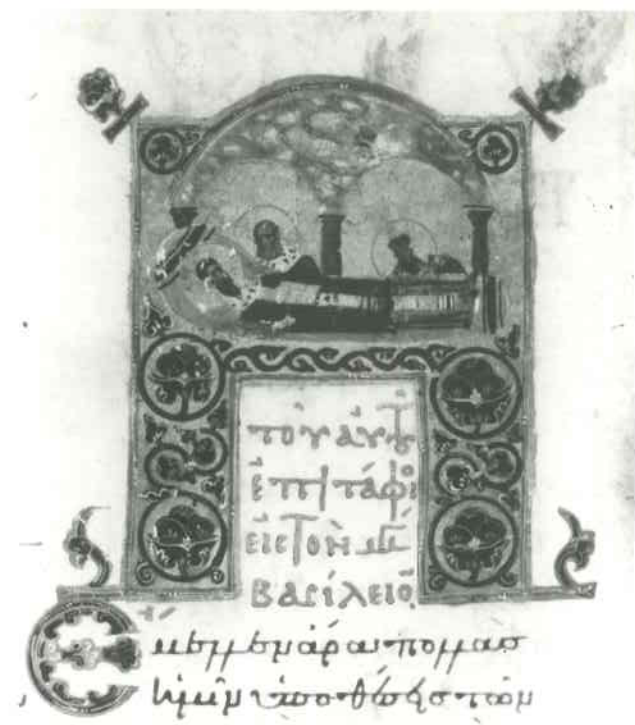 τοῦ αὐτ
ἐπιτάφι
εἰς τὸν μέ
βασίλειο
Ἔμελλεν ἄρα πολλὰς
ἡμῖν ὑποθέσεις τῶν